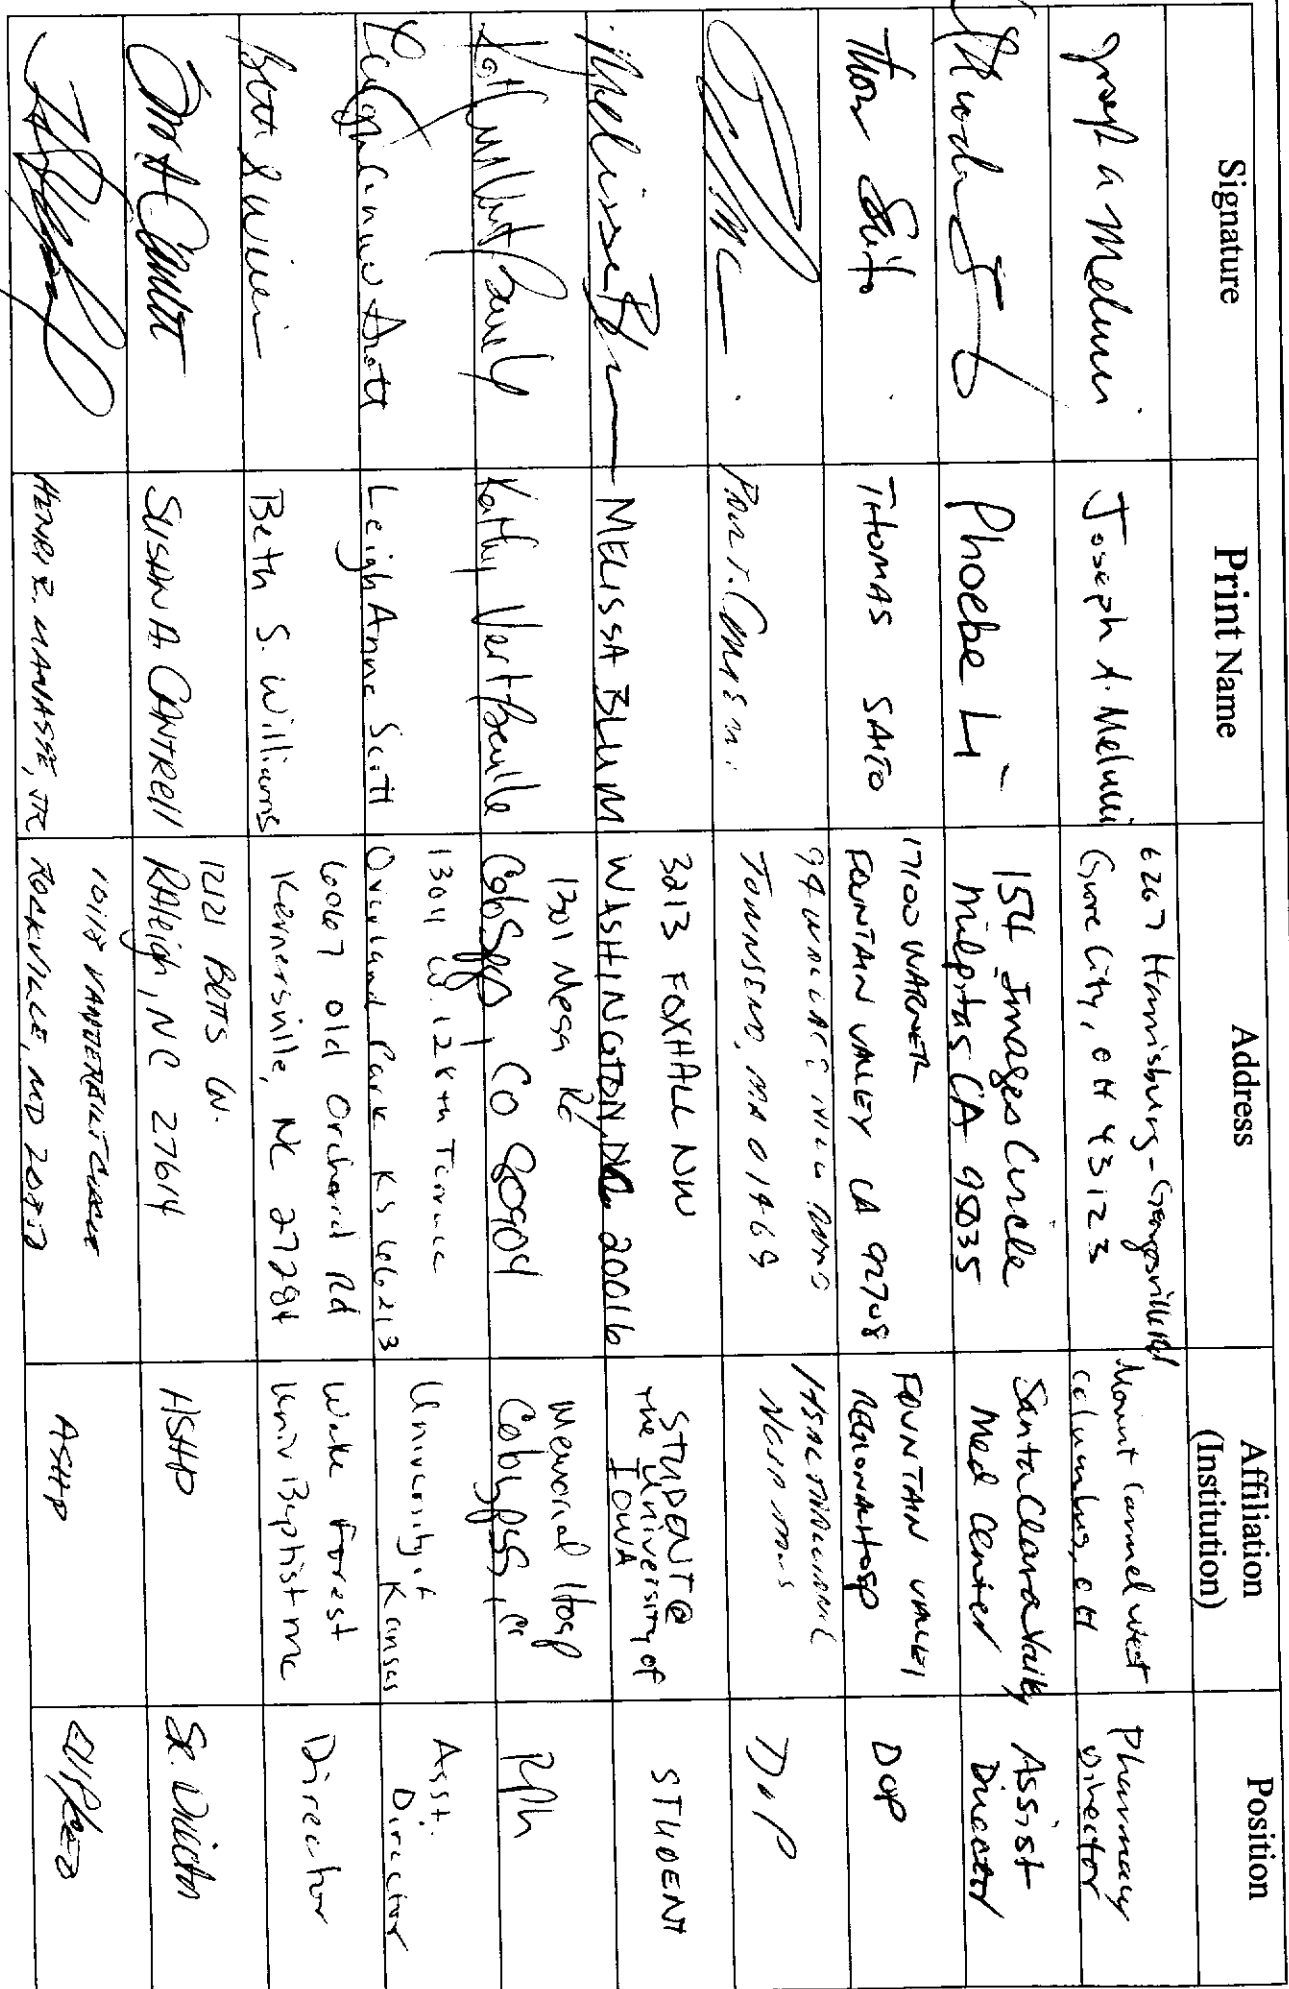 Signature Print Name Address Affiliation (Institution) Position
Joseph A. Melucci
6267 Harrisburg-Georgesville Rd
Grove City, OH 43123
Mount Carmel West
Columbus, OH
Pharmacy
Director
Phoebe Li
154 Images Circle
Milpitas CA 95035
Santa Clara Valley
Med Center
Assist
Director
Thom Saito
THOMAS SAITO
17100 WARNER
FOUNTAIN VALLEY CA 92708
FOUNTAIN VALLEY
REGIONAL HOSP
DOP
TOWNSEND, MA 01469
DOP
MELISSA BLUM
3213 FOXHALL NW
WASHINGTON, DC 20016
STUDENT @
the University of
IOWA
STUDENT
Kathy Vertbaille
1301 Mesa Rd
Colo Spgs, CO 80904
Memorial Hosp
Colo Spgs, CO
RPh
Leigh Anne Scott
Leigh Anne Scott
13011 W. 128th Terrace
Overland Park KS 66213
University of
Kansas
Asst.
Director
Beth S. Williams
6067 Old Orchard Rd
Kernersville, NC 27284
Wake Forest
Univ Baptist MC
Director
SUSAN A. CANTRELL
12121 BETTS LN.
RALeigh, NC 27614
ASHP
SR. Director
HENRI R. MANASSE, JR
10118 VANDERBILT CIRCLE
ROCKVILLE, MD
ASHP